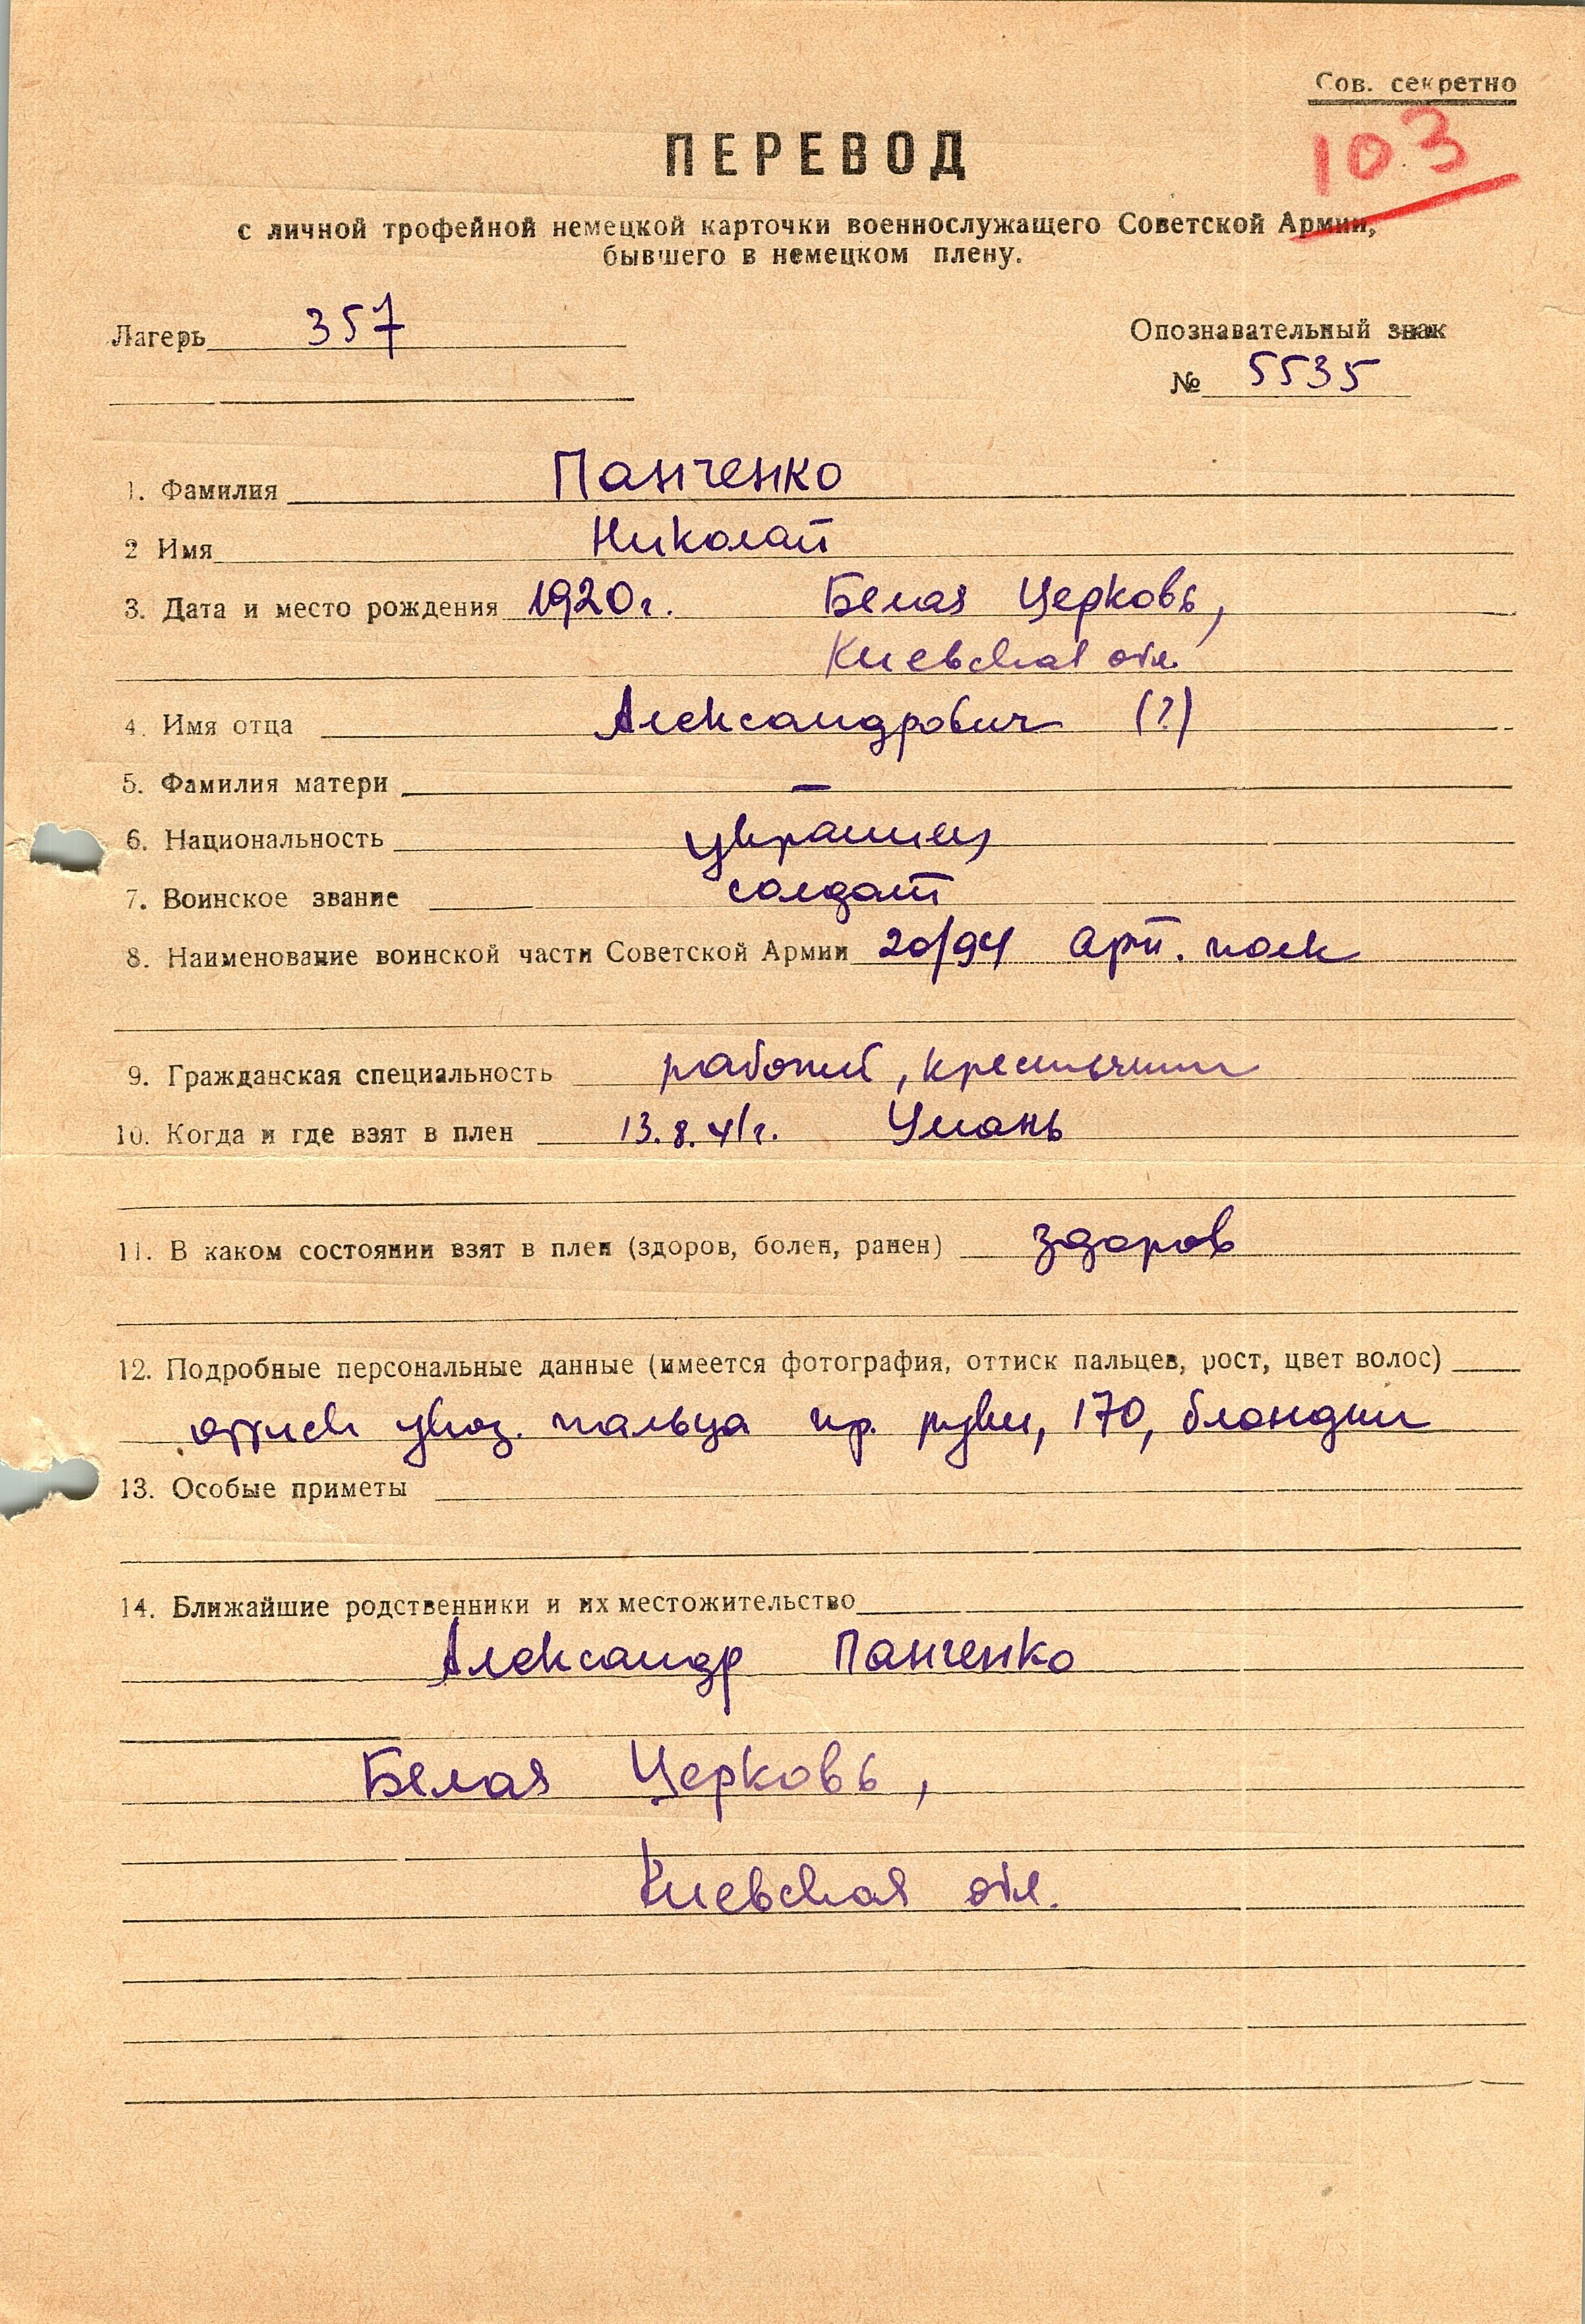 Сов. секретно
103
ПЕРЕВОД
с личной трофейной немецкой карточки военнослужащего Советской Армии,
бывшего в немецком плену.
Лагерь 357
Опознавательный знак
№ 5535
1. Фамилия Панченко
2 Имя Николай
3. Дата и место рождения 1920г. Белая Церковь,
Киевская обл.
4. Имя отца Александрович (?)
5. Фамилия матери —
6. Национальность украинец
7. Воинское звание солдат
8. Наименование воинской части Советской Армии 20/94 арт. полк
9. Гражданская специальность рабочий, крестьянин
10. Когда и где взят в плен 13.8.41г. Умань
11. В каком состоянии взят в плен (здоров, болен, ранен) здоров
12. Подробные персональные данные (имеется фотография, оттиск пальцев, рост, цвет волос)
оттиск указ. пальца пр. руки, 170, блондин
13. Особые приметы
14. Ближайшие родственники и их местожительство
Александр Панченко
Белая Церковь,
Киевская обл.